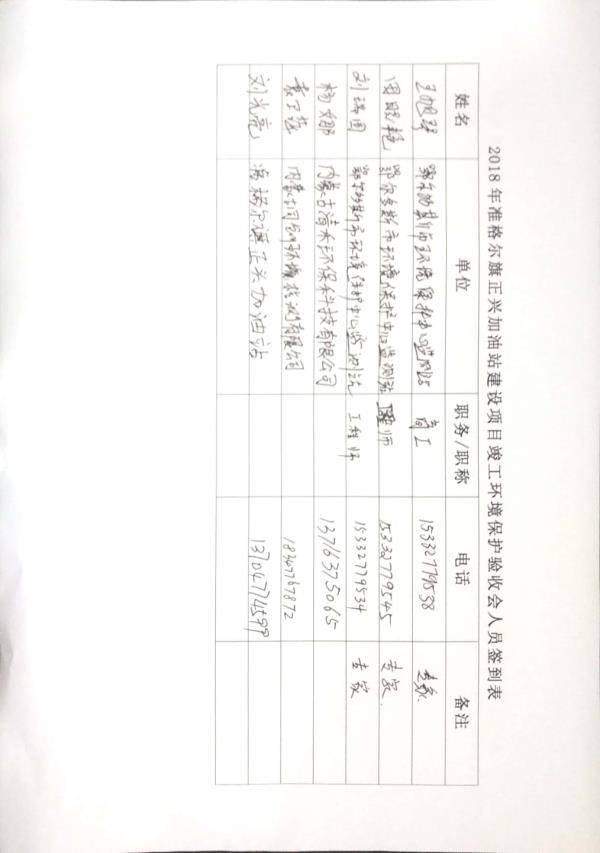 2018年准格尔旗正兴加油站建设项目竣工环境保护验收会人员签到表
姓名 单位 职务/职称 电话 备注
鄂尔多斯市环境保护中心监测站 高工 专家
鄂尔多斯市环境保护中心监测站 工程师 15332779545 专家
刘瑞国 鄂尔多斯市环境保护中心监测站 工程师 15332779534 专家
杨娜 内蒙古清水环保科技有限公司 1376375065
内蒙古 环境检测有限公司 18347767872
刘光亮 准格尔旗正兴加油站 13704774599